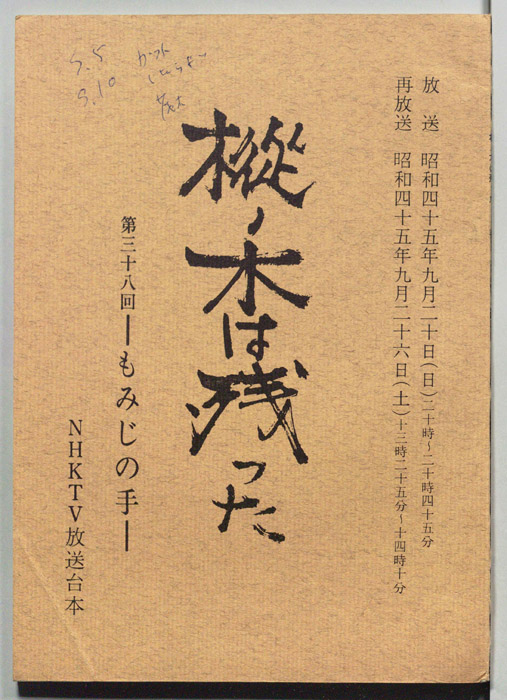 放送 昭和四十五年九月二十日(日)二十時〜二十時四十五分
再放送 昭和四十五年九月二十六日(土)十三時二十五分〜十四時十分
樅ノ木は残った
第三十八回―もみじの手―
NHKTV放送台本
S.5
S.10